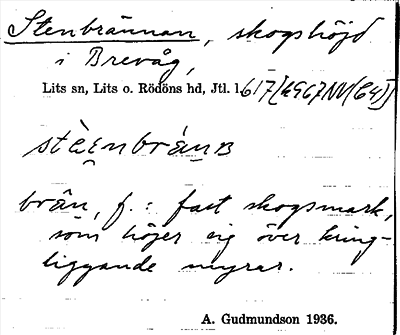 Stenbrännan, skogshöjd
i Brevåg,
Lits sn, Lits o. Rödöns hd, Jtl. l.
stèɛnbrán
brån, f.: fast skogsmark,
som höjer sig över kring-
liggande myrar.
A. Gudmundson 1936.